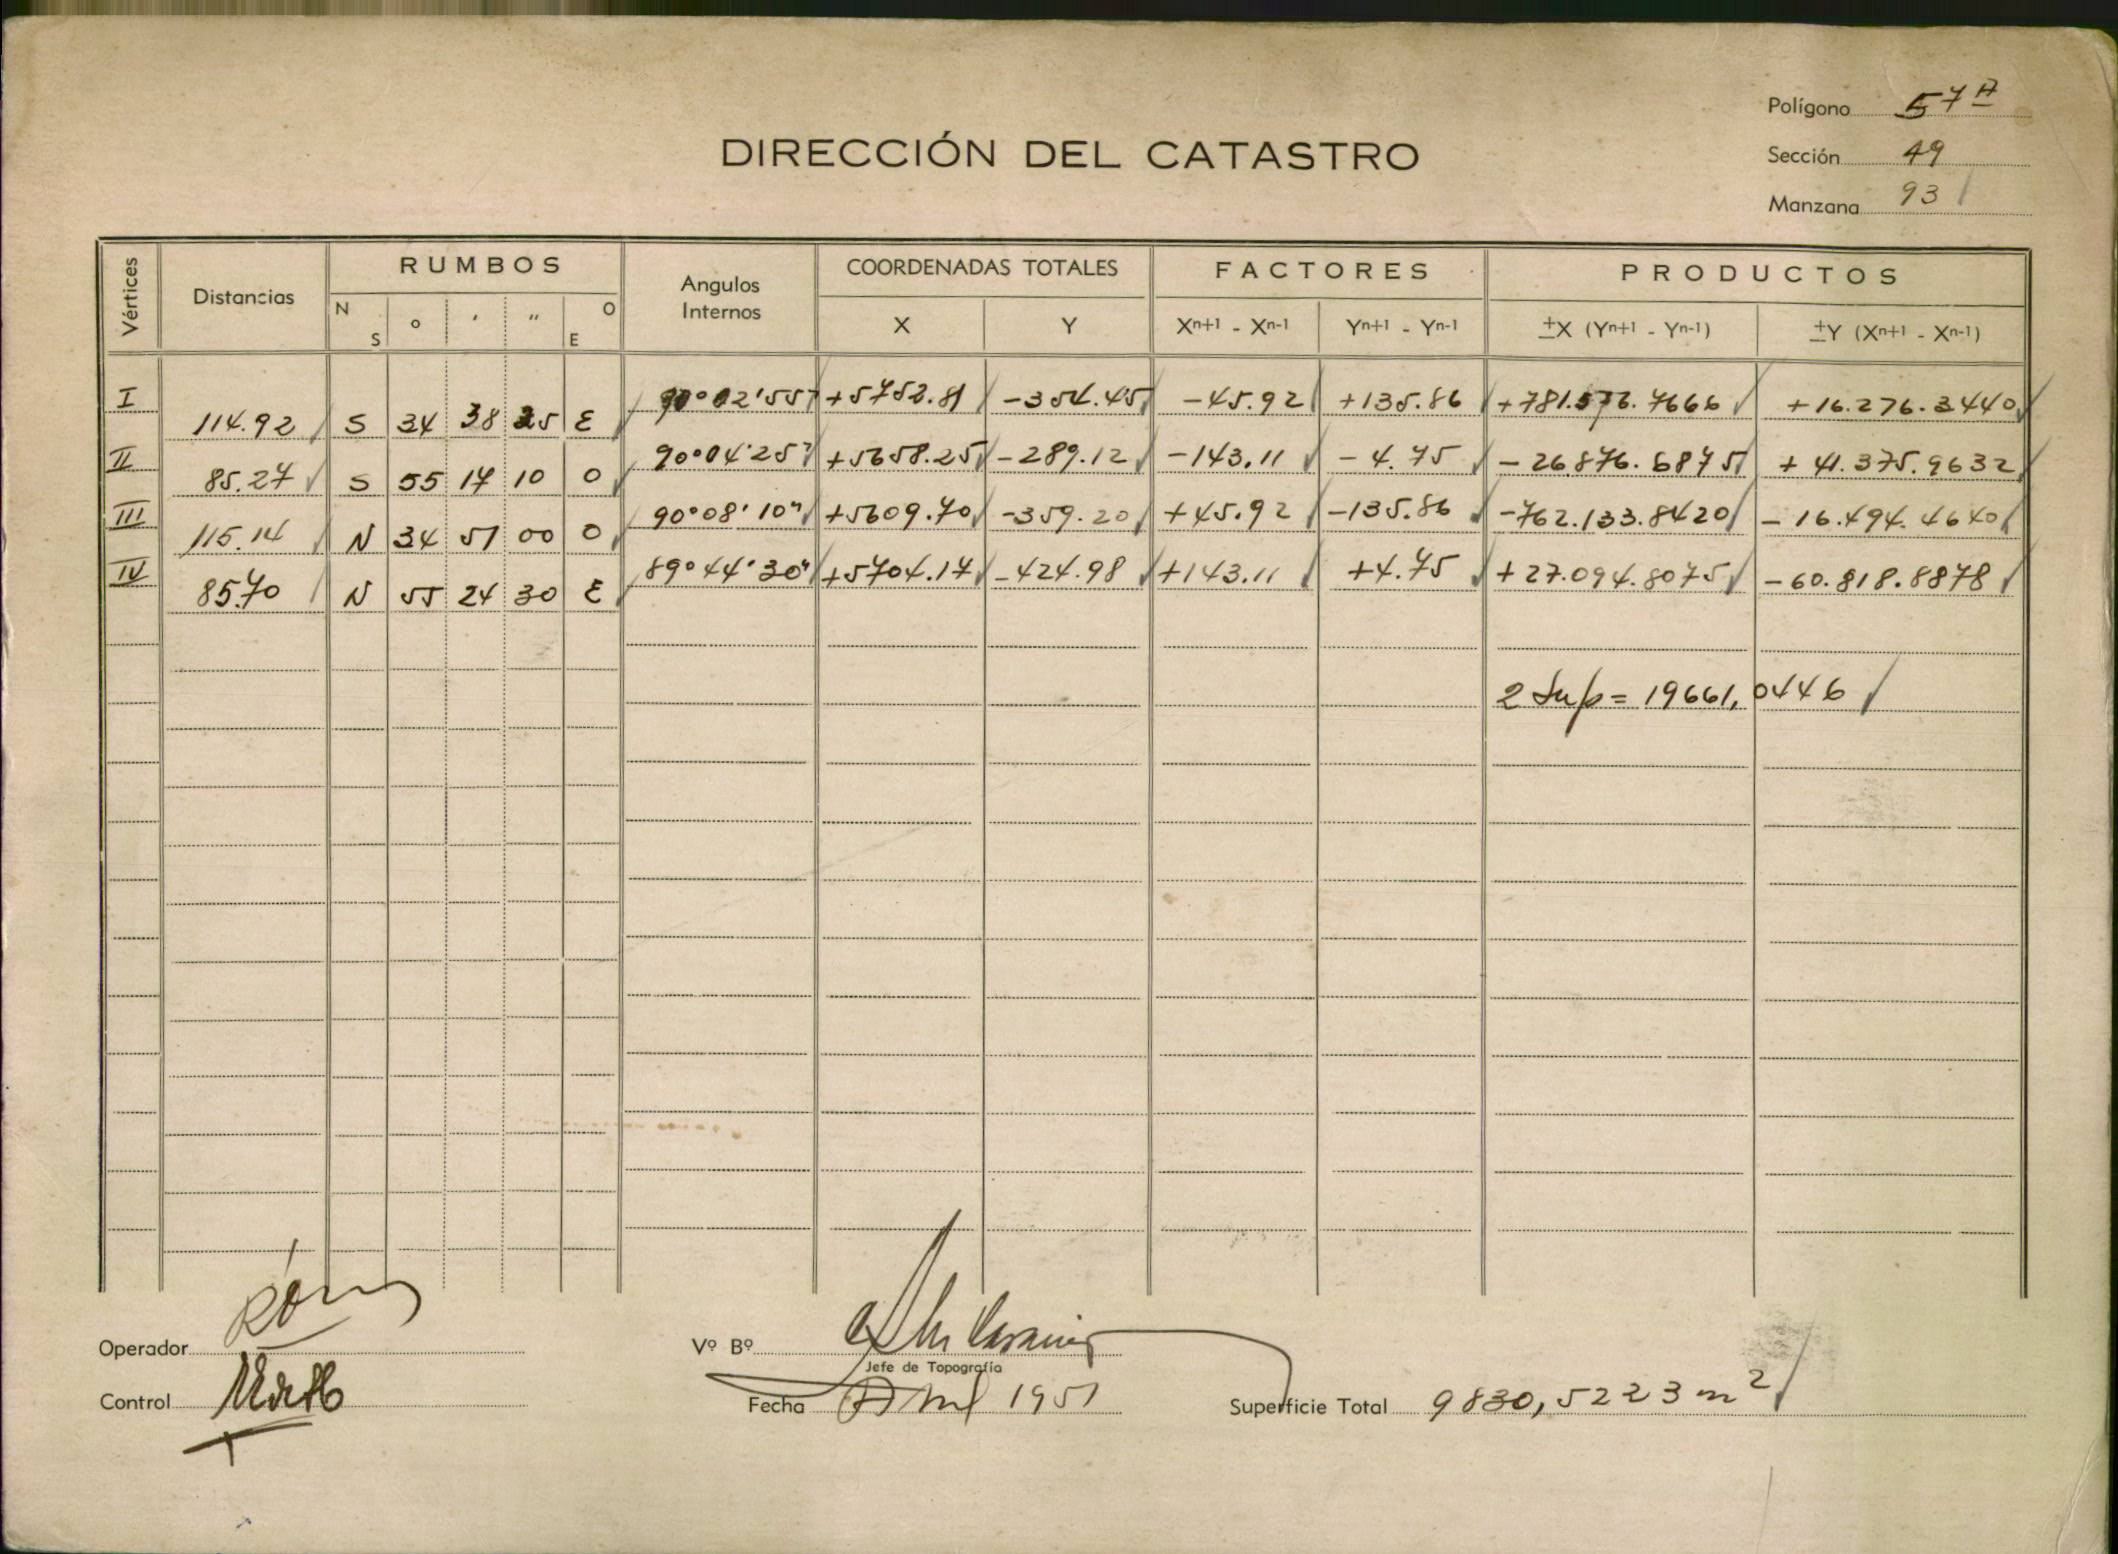 Polígono 57 A
DIRECCIÓN DEL CATASTRO
Sección 49
Manzana 93
Vértices Distancias RUMBOS Angulos Internos COORDENADAS TOTALES FACTORES PRODUCTOS
N S ° ' " O E X Y Xn+1 - Xn-1 Yn+1 - Yn-1 ±X (Yn+1 - Yn-1) ±Y (Xn+1 - Xn-1)
I 90°02'55" +5752.81 -354.45 -45.92 +135.86 +781.576.7666 +16.276.3440
114.92 S 34 38 25 E
II 90°04'25" +5658.25 -289.12 -143.11 -4.75 -26.876.6875 +41.375.9632
85.27 S 55 17 10 O
III 90°08'10" +5609.70 -359.20 +45.92 -135.86 -762.133.8420 -16.494.4640
115.14 N 34 51 00 O
IV 89°44'30" +5704.17 -424.98 +143.11 +4.75 +27.094.8075 -60.818.8878
85.70 N 55 24 30 E
2 Sup = 19661,0446
Operador
Vº Bº
Jefe de Topografía
Control
Fecha Abril 1951
Superficie Total 9830,5223 m2